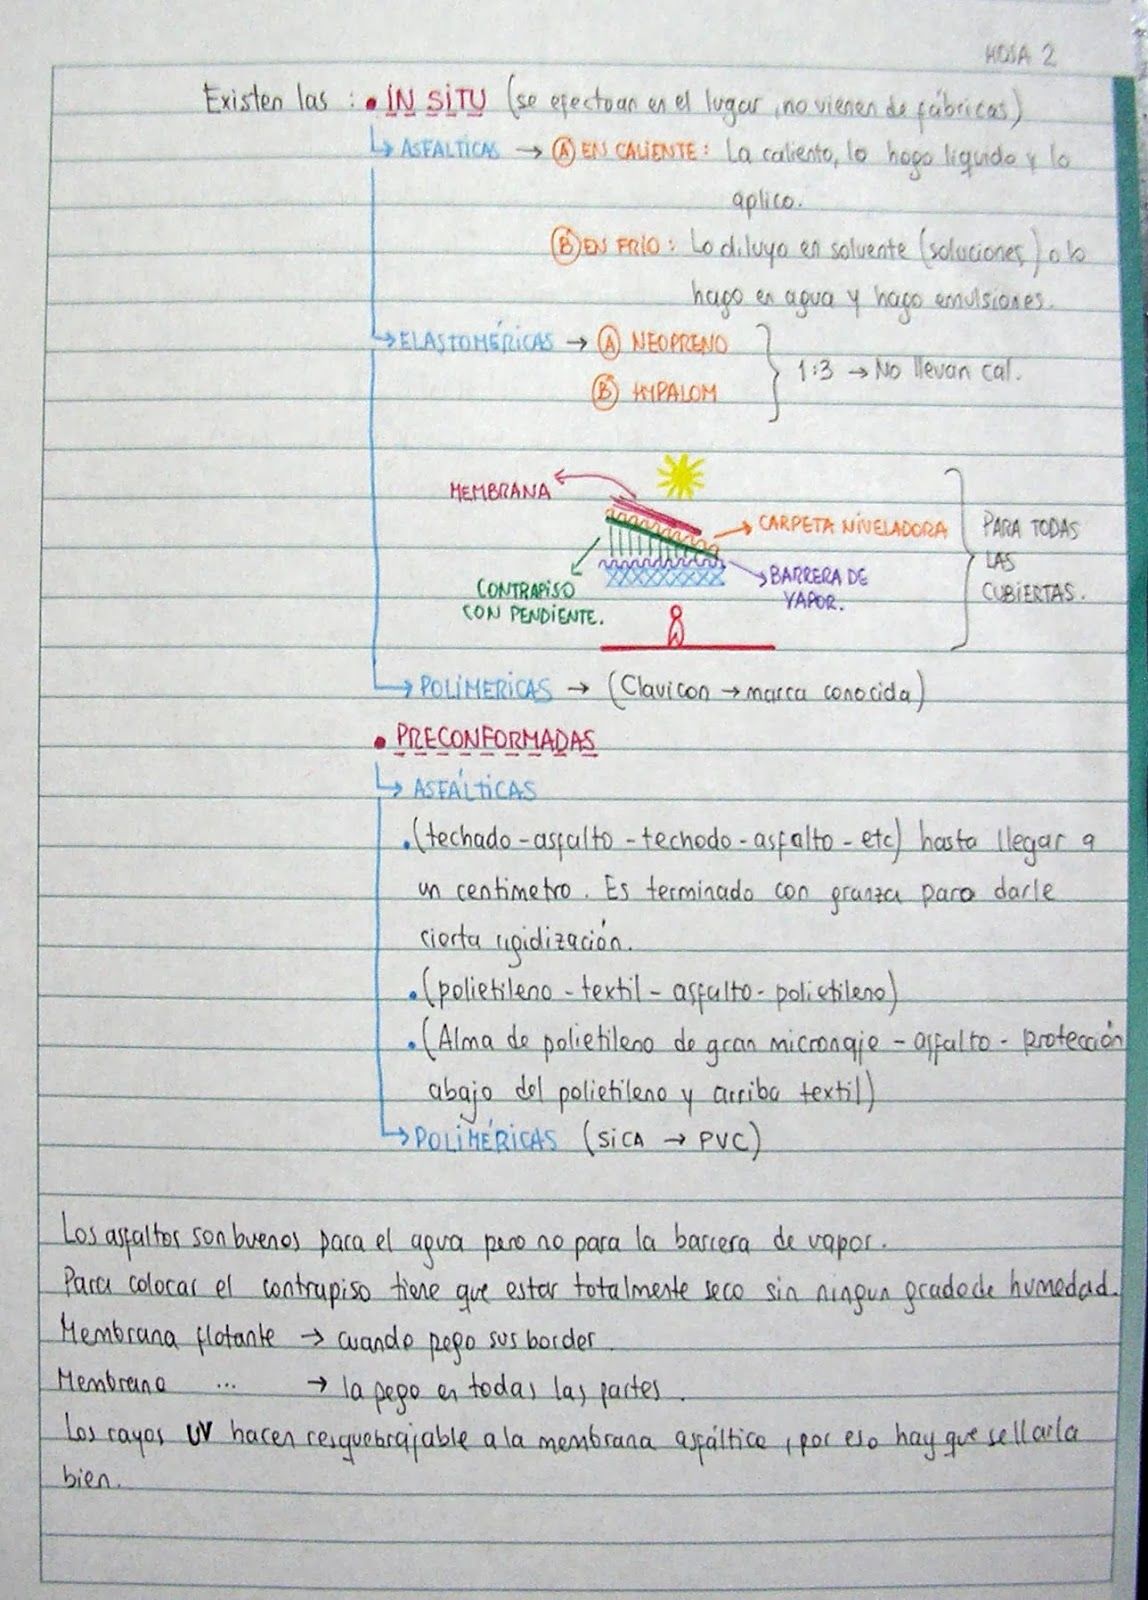 HOJA 2
Existen las : • IN SITU (se efectuan en el lugar, no vienen de fábricas)
↳ ASFALTICAS → Ⓐ EN CALIENTE: La caliento, lo hago liquido y lo
aplico.
Ⓑ EN FRIO: Lo diluyo en solvente (soluciones) o lo
hago en agua y hago emulsiones.
↳ ELASTOMÉRICAS → Ⓐ NEOPRENO
Ⓑ HYPALOM
1:3 → No llevan cal.
MEMBRANA
CARPETA NIVELADORA
BARRERA DE
VAPOR.
CONTRAPISO
CON PENDIENTE.
PARA TODAS
LAS
CUBIERTAS.
↳ POLIMERICAS → (Clavicon → marca conocida)
• PRECONFORMADAS
↳ ASFÁLTICAS
• (techado - asfalto - techado - asfalto - etc) hasta llegar a
un centimetro. Es terminado con granza para darle
cierta rigidización.
• (polietileno - textil - asfalto - polietileno)
• (Alma de polietileno de gran micronaje - asfalto - protección
abajo del polietileno y arriba textil)
↳ POLIMÉRICAS (SICA → PVC)
Los asfaltos son buenos para el agua pero no para la barrera de vapor.
Para colocar el contrapiso tiene que estar totalmente seco sin ningun grado de humedad.
Membrana flotante → cuando pego sus border.
Membrana ... → la pego en todas las partes.
Los rayos UV hacen resquebrajable a la membrana asfáltica, por eso hay que sellarla
bien.